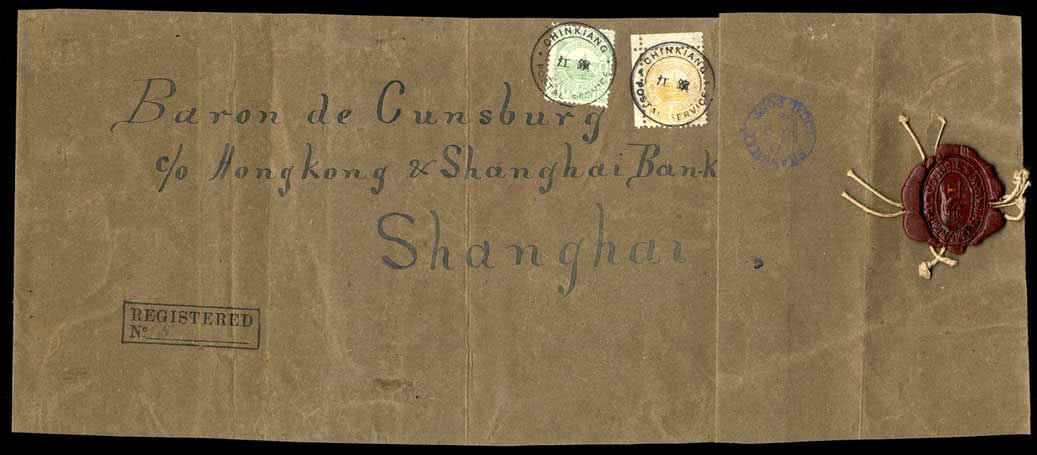 CHINKIANG
鎮江
POSTAL SERVICE
CHINKIANG
鎮江
POSTAL SERVICE
Baron de Gunsburg
c/o Hongkong & Shanghai Bank
Shanghai
LOCAL POST
REGISTERED
No.